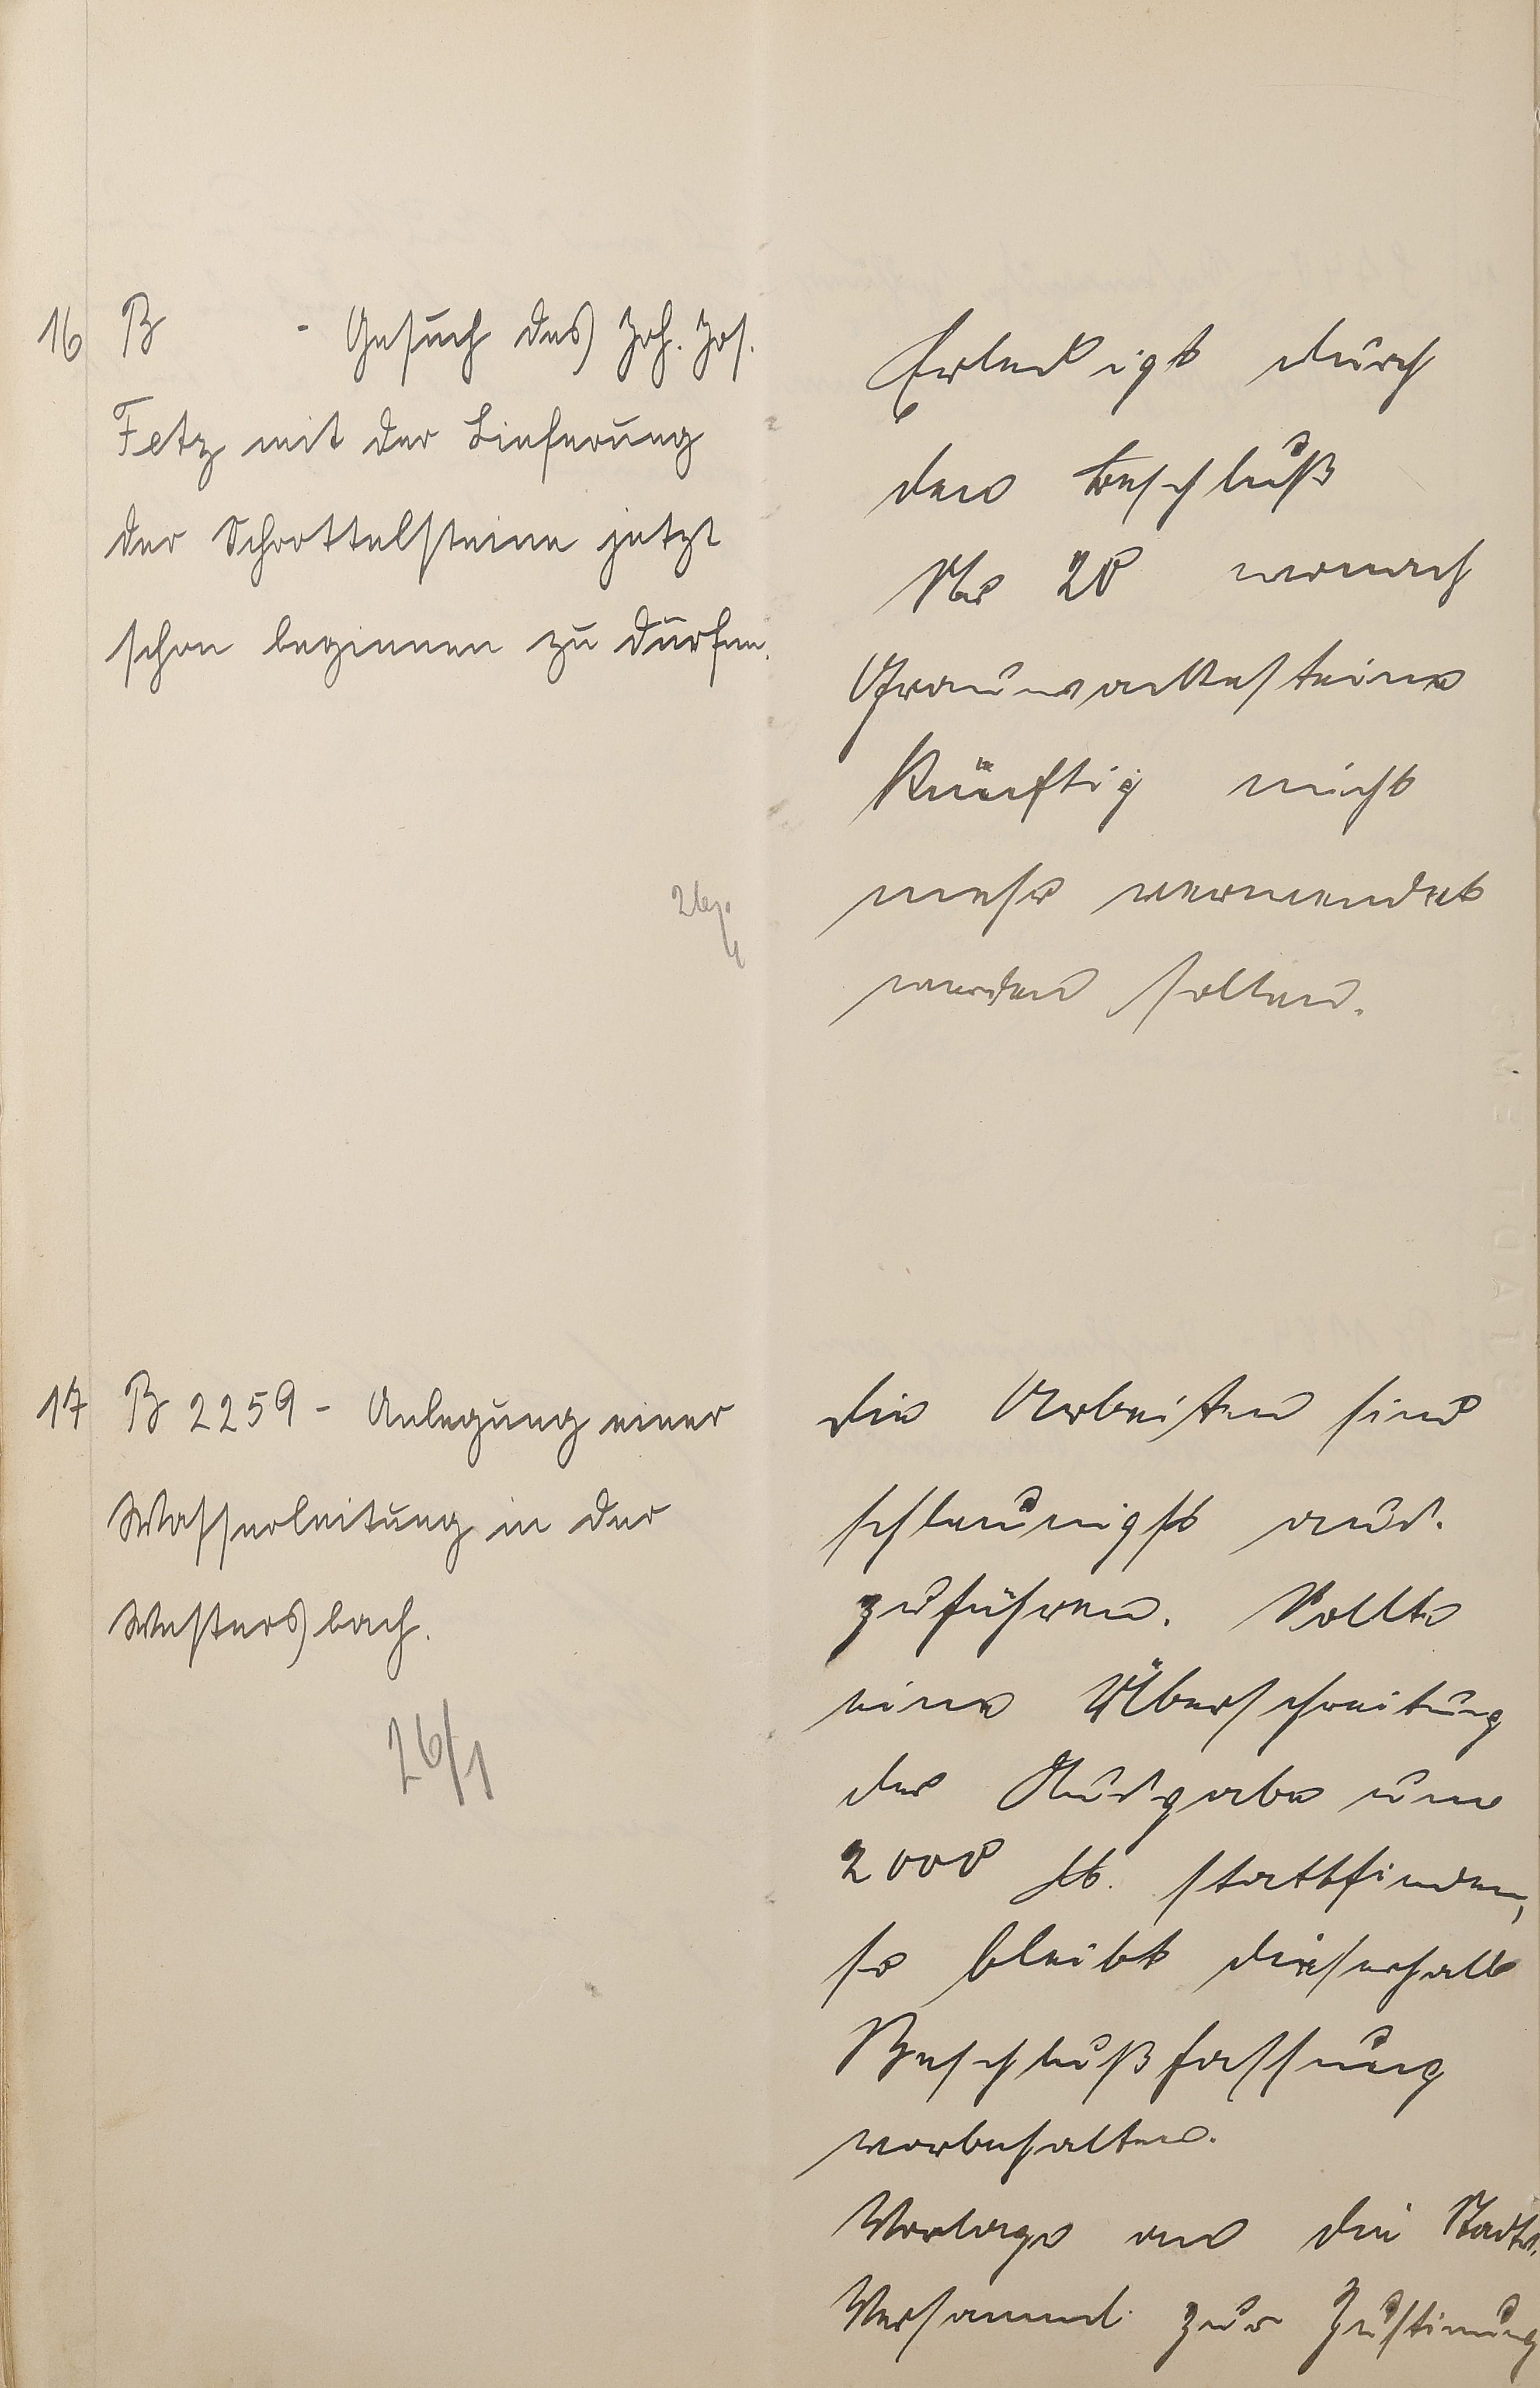 16 B - Gesuch des Joh. Jos.
Fetz mit der Lieferung
der Schrottelsteine jetzt
schon beginnen zu dürfen.
Erledigt durch
den Beschluß
Nr 20 wonach
Grauwackesteine
künftig nicht
mehr verwendet
werden sollen.
17 B 2259 - Anlegung einer
Wasserleitung in der
Westersbach.
26/1
Die Arbeiten sind
schleunigst aus-
zuführen. Sollte
eine Überschreitung
der Ausgabe um
2000 M. stattfinden,
so bleibt dieserhalb
Beschlußfassung
vorbehalten.
Vorlage an die Stadtv.
Versamml. zur Zustimung